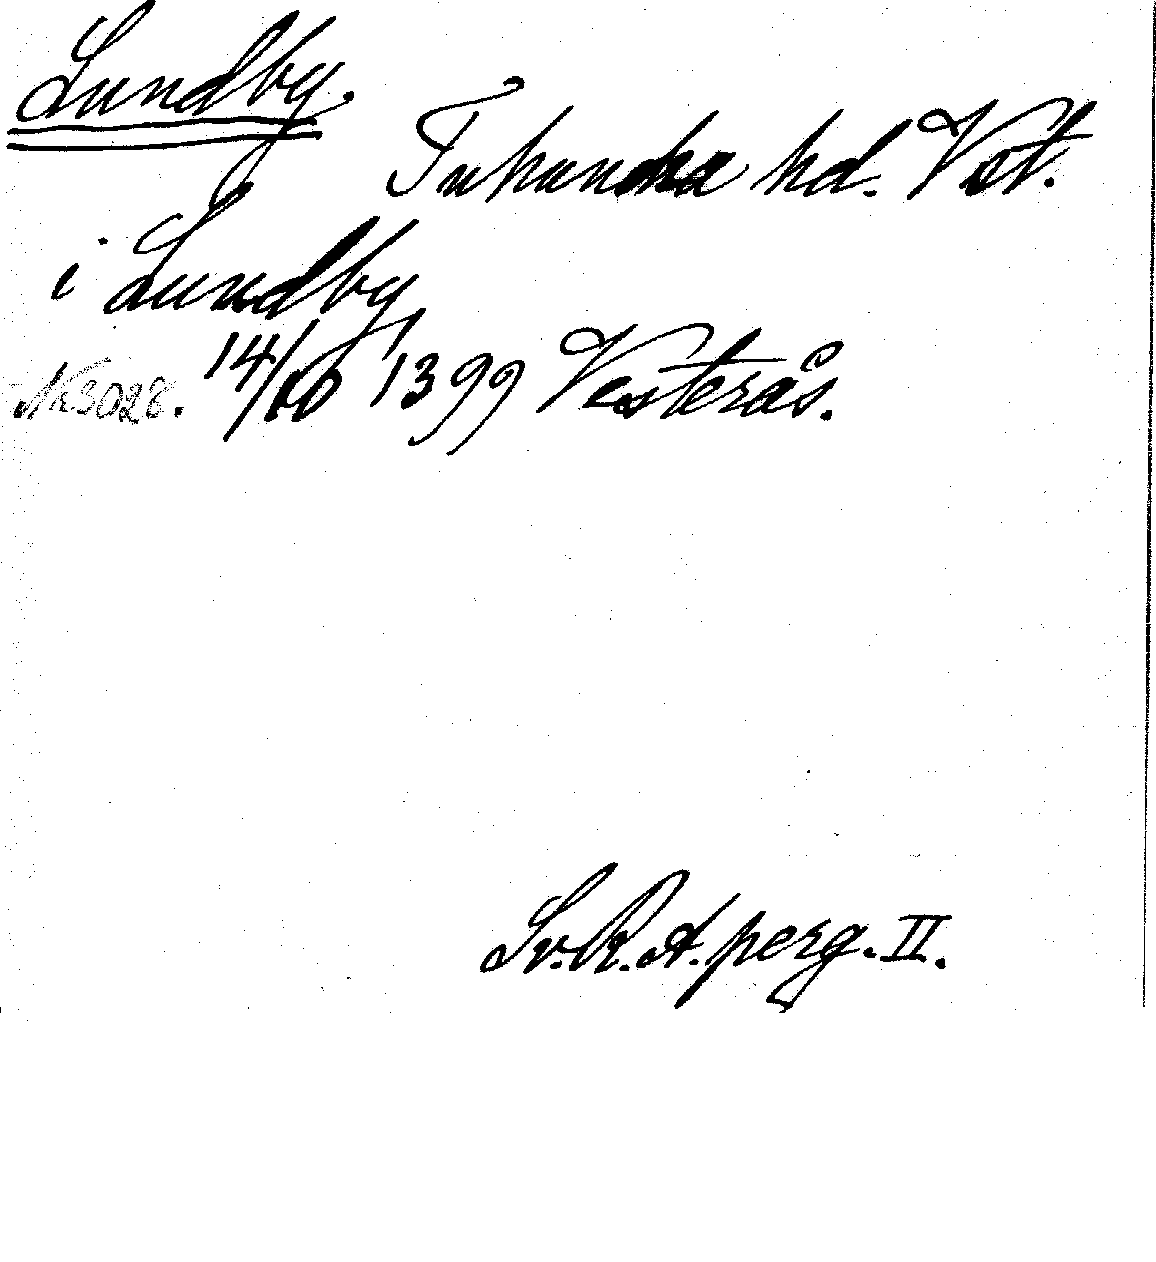 Lundby.
Tuhundra hd. Vst.
i Lundby
Nr 3028. 14/10 1399 Vesterås.
Sv. R. A. perg. II.